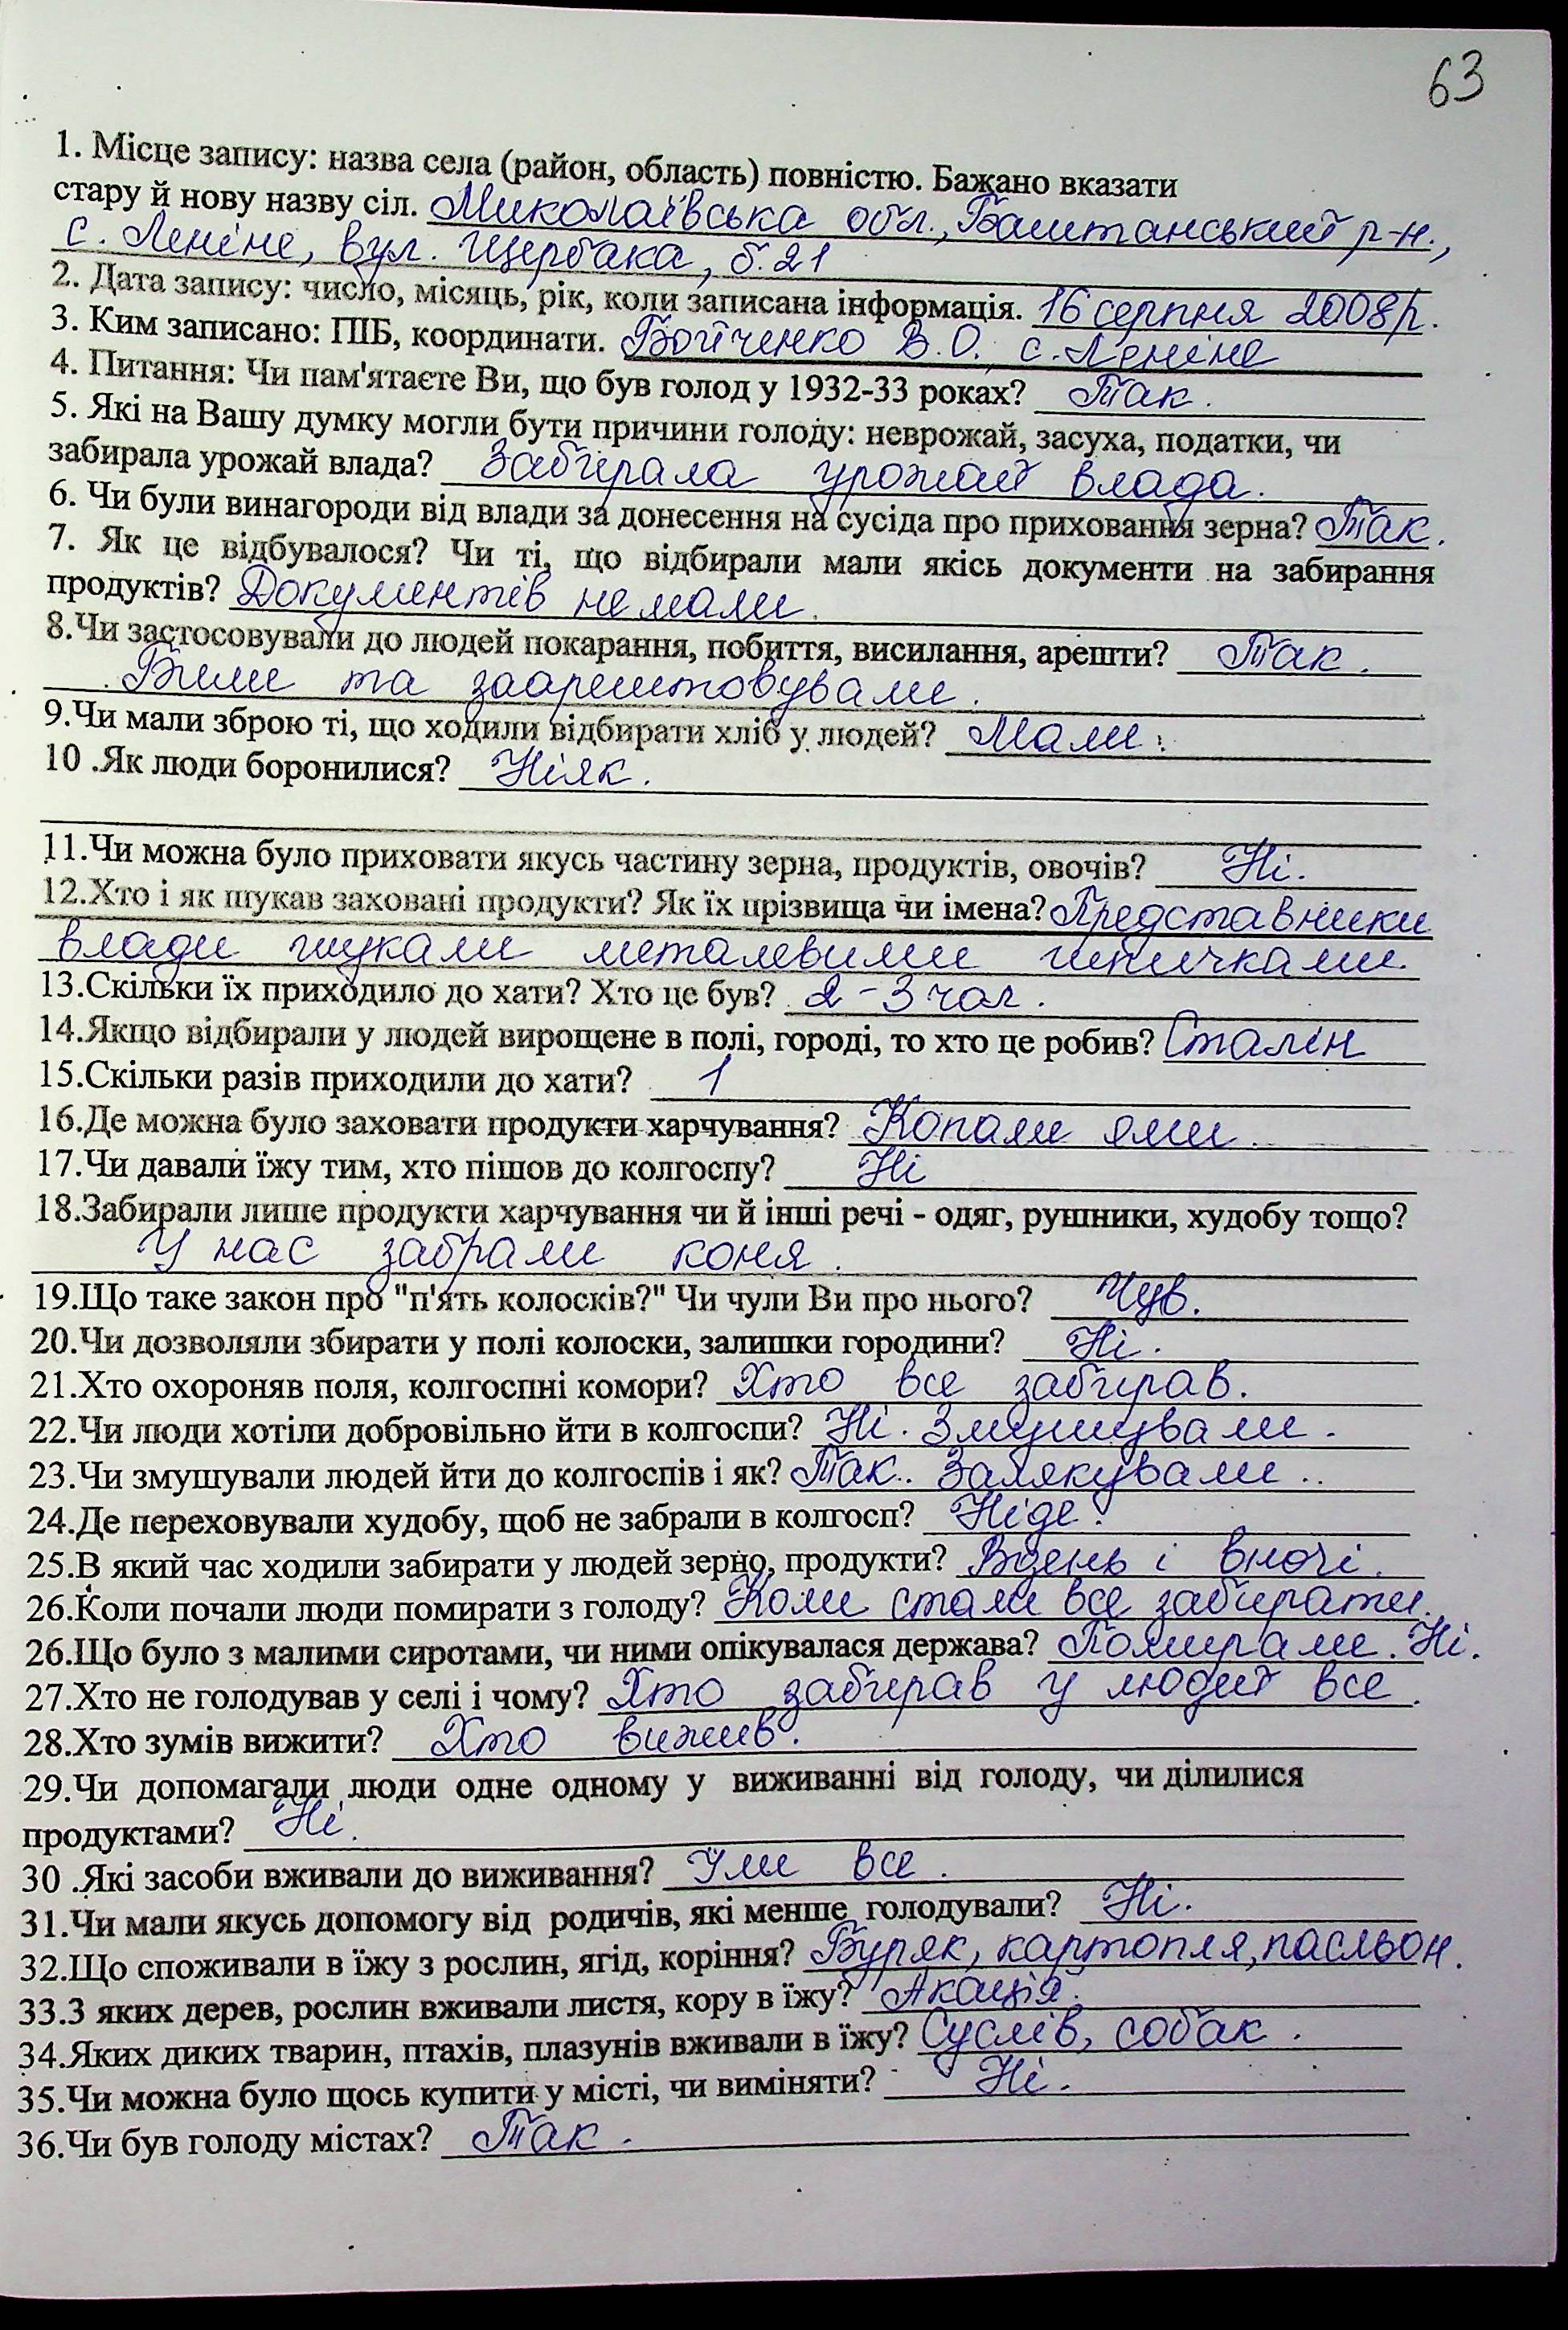 63
1. Місце запису: назва села (район, область) повністю. Бажано вказати
стару й нову назву сіл. Миколаївська обл., Баштанський р-н.,
с. Леніне, вул. Щербака, б.21
2. Дата запису: число, місяць, рік, коли записана інформація. 16 серпня 2008р.
3. Ким записано: ПІБ, координати. Бойченко В.О. с. Леніне
4. Питання: Чи пам'ятаєте Ви, що був голод у 1932-33 роках? Так.
5. Які на Вашу думку могли бути причини голоду: неврожай, засуха, податки, чи
забирала урожай влада? Забирала урожай влада.
6. Чи були винагороди від влади за донесення на сусіда про приховання зерна? Так.
7. Як це відбувалося? Чи ті, що відбирали мали якісь документи на забирання
продуктів? Документів не мали.
8.Чи застосовували до людей покарання, побиття, висилання, арешти? Так.
Били та заарештовували.
9.Чи мали зброю ті, що ходили відбирати хліб у людей? Мали.
10 .Як люди боронилися? Ніяк.
11.Чи можна було приховати якусь частину зерна, продуктів, овочів? Ні.
12.Хто і як шукав заховані продукти? Як їх прізвища чи імена? Представники
влади шукали металевими шпичками.
13.Скільки їх приходило до хати? Хто це був? 2-3 чол.
14.Якщо відбирали у людей вирощене в полі, городі, то хто це робив? Сталін
15.Скільки разів приходили до хати? 1
16.Де можна було заховати продукти харчування? Копали ями.
17.Чи давали їжу тим, хто пішов до колгоспу? Ні
18.Забирали лише продукти харчування чи й інші речі - одяг, рушники, худобу тощо?
У нас забрали коня.
19.Що таке закон про "п'ять колосків?" Чи чули Ви про нього? Чув.
20.Чи дозволяли збирати у полі колоски, залишки городини? Ні.
21.Хто охороняв поля, колгоспні комори? Хто все забирав.
22.Чи люди хотіли добровільно йти в колгоспи? Ні. Змушували.
23.Чи змушували людей йти до колгоспів і як? Так.. Залякували..
24.Де переховували худобу, щоб не забрали в колгосп? Ніде.
25.В який час ходили забирати у людей зерно, продукти? Вдень і вночі.
26.Коли почали люди помирати з голоду? Коли стали все забирати.
26.Що було з малими сиротами, чи ними опікувалася держава? Помирали. Ні.
27.Хто не голодував у селі і чому? Хто забирав у людей все.
28.Хто зумів вижити? Хто вижив.
29.Чи допомагали люди одне одному у виживанні від голоду, чи ділилися
продуктами? Ні.
30 .Які засоби вживали до виживання? Їли все.
31.Чи мали якусь допомогу від родичів, які менше голодували? Ні.
32.Що споживали в їжу з рослин, ягід, коріння? Буряк, картопля, пасльон.
33.З яких дерев, рослин вживали листя, кору в їжу? Акація.
34.Яких диких тварин, птахів, плазунів вживали в їжу? Суслів, собак.
35.Чи можна було щось купити у місті, чи виміняти? Ні.
36.Чи був голоду містах? Так.